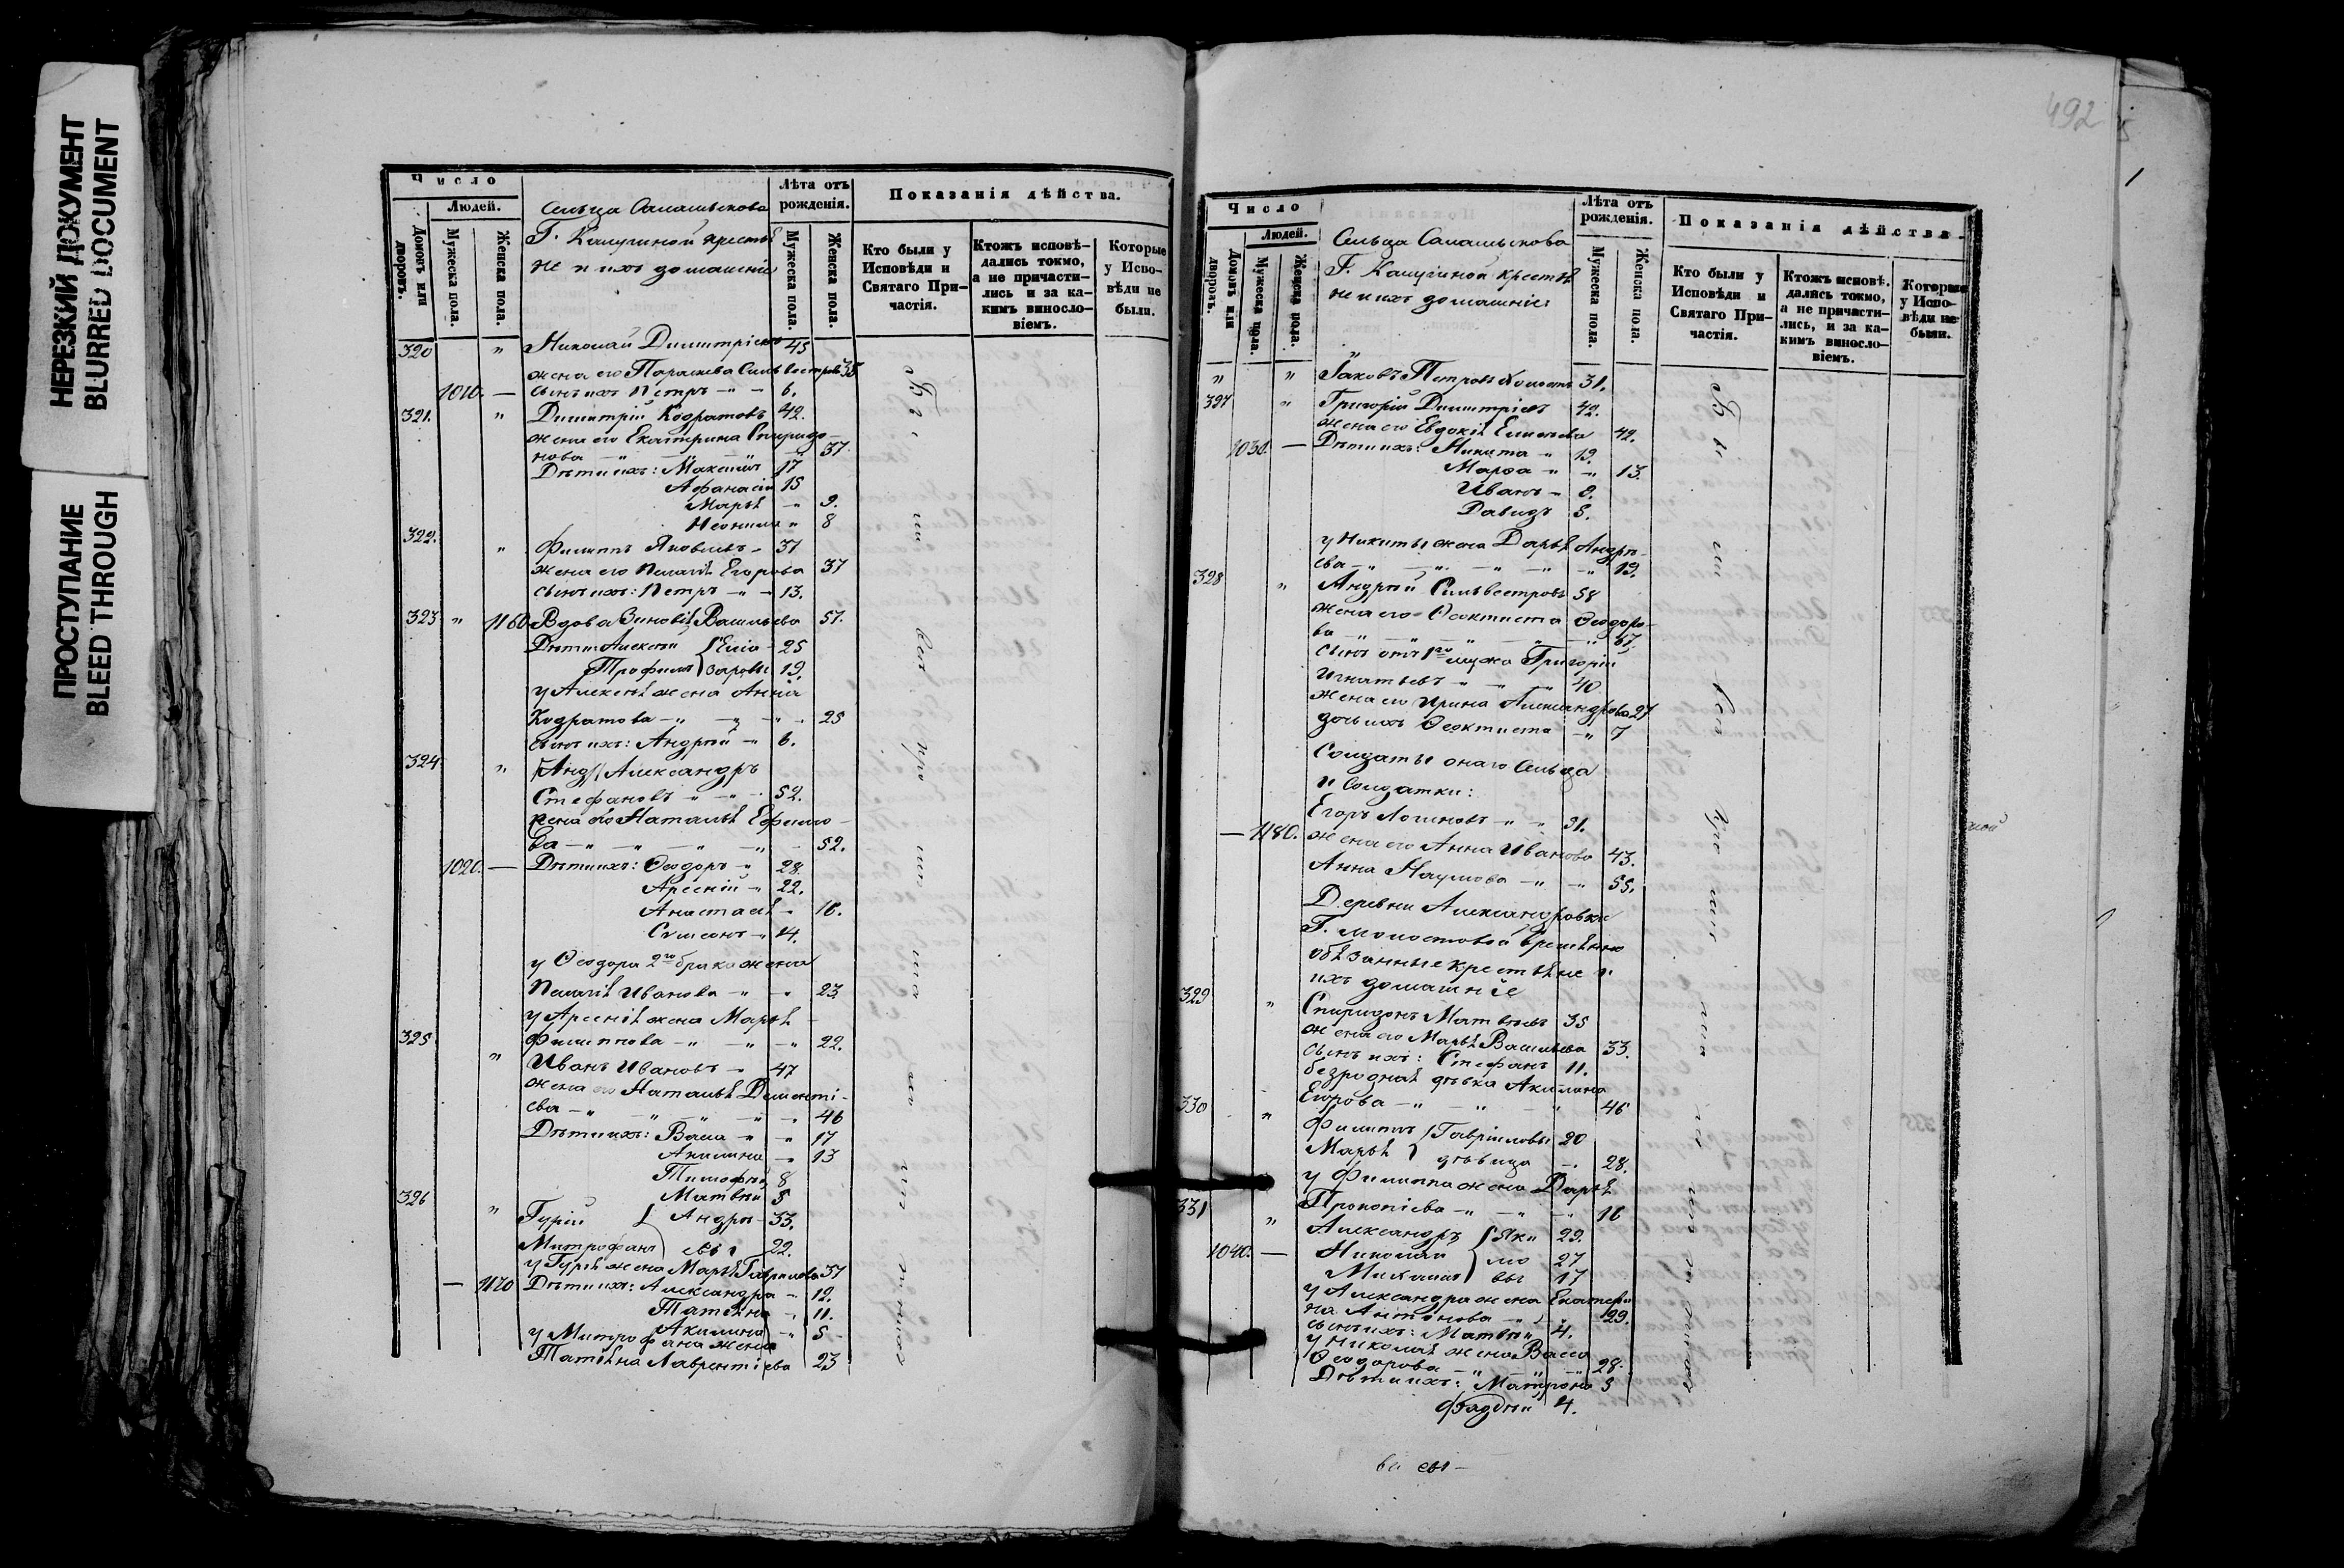 НЕРЕЗКИЙ ДОКУМЕНТ
BLURRED DOCUMENT
ПРОСТУПАНИЕ
BLEED THROUGH
Число
Людей.
Домовъ или дворовъ.
Мужеска пола.
Женска пола.
Сельца
Г. Калугиной крестья
не и ихъ домашніе
Лѣта отъ рожденія.
Мужеска пола.
Женска пола.
Показанія дѣйства.
Кто были у Исповѣди и Святаго При-частія.
Ктожъ исповѣ-дались токмо, а не причасти-лись и за ка-кимъ винословіемъ.
Которые у Испо-вѣди не были.
320 " Николай Димитріевъ 45
жена его Параскева Сильвестрова 35
1010. — сынъ ихъ Петръ - " - 6.
321. " Димитрій Кодратовъ 42.
жена его Екатерина Спиридо-
нова - " - 37.
Дѣти ихъ: Максимъ 17
Афанасій 15
Марья - 9.
Неонила " 8
322. " Филиппъ Яковлевъ - 37
жена его Пелагія Егорова 37
сынъ ихъ: Петръ - " - 13.
323 " 1160 Вдова Зиновія Васильева 57.
Дѣти Алексѣй { Еліа- 25
Трофимъ } заровы 19.
у Алексѣя жена Анна
Кодратова - " - 25
сынъ ихъ: Андрей - " 6.
324 " [Анд] Александръ
Стефановъ - " - 52.
жена его Наталья Ефимо-
ва - " - 52.
1020. — Дѣти ихъ: Ѳеодоръ - " 28.
Арсеній - " 22.
Анастасія - 16.
Симеонъ - " 14.
у Ѳеодора 2го брака жена
Пелагія Иванова - " - 23
у Арсенія жена Марья
Филиппова - " - 22.
325 " Иванъ Ивановъ - 47
жена его Наталья Дементі-
ева - " - 46
Дѣти ихъ: Васса - " 17
Акилина - 13
Тимофей 8
Матвѣй 5
326 " Гурій { Андре- 33.
Митрофанъ } евы 22.
у Гурія жена Марья Гаврилова 37
— 1170 Дѣти ихъ: Александра - 12.
Татьяна - 11.
Акилина - " 5 -
у Митрофана жена
Татьяна Лаврентіева 23
492
Число
Людей.
Домовъ или дворовъ.
Мужеска пола.
Женска пола.
Сельца
Г. Калугиной крестья
не и ихъ домашніе
Лѣта отъ рожденія.
Мужеска пола.
Женска пола.
Показанія дѣйства.
Кто были у Исповѣди и Святаго При-частія.
Ктожъ исповѣ-дались токмо, а не причасти-лись, и за ка-кимъ винословіемъ.
Которые у Испо-вѣди не были.
" " Яковъ Петровъ Холостъ 31.
327 " Григорій Димитріевъ 42.
жена его Евдокія 42.
1030. — Дѣти ихъ: Никита - " 19.
Марѳа - " 13.
Иванъ - 8.
Давидъ 5.
у Никиты жена Дарья Андре-
ева - " - 19.
328 " Андрей Сильвестровъ 58
жена его Ѳеоктиста Ѳеодоро-
ва - " - 67.
сынъ отъ 1го мужа Григорій
Игнатьевъ - " - 40
жена его Ирина Александрова 27
дочь ихъ Ѳеоктиста - " 7
Солдаты онаго Сельца
и Солдатки:
Егоръ Логиновъ - " - 31.
— 1180. жена его Анна Иванова 43.
Анна Наумова - " - 55.
Деревни Александровки
Г. временно
обязанные крестьяне и
ихъ домашніе
329 " Спиридонъ Матвѣевъ 35
жена его Марья Васильева 33.
сынъ ихъ: Стефанъ 11.
безродная дѣвка Акилина
Егорова - " - 46
330 " Филиппъ { Гавриловы 20
Марья } дѣвица - 28.
у Филиппа жена Дарья
Прокопіева - " - 18
331 " Александръ { Яки 29.
1040. — Николай мо 27
Михаилъ } вы 17
у Александра жена Екатери-
на Антонова - " 29.
сынъ ихъ: Матвѣй 4.
у Николая жена Васса
Ѳеодорова - " - 28.
Дѣти ихъ: Матрона 5
Фаддей 4.